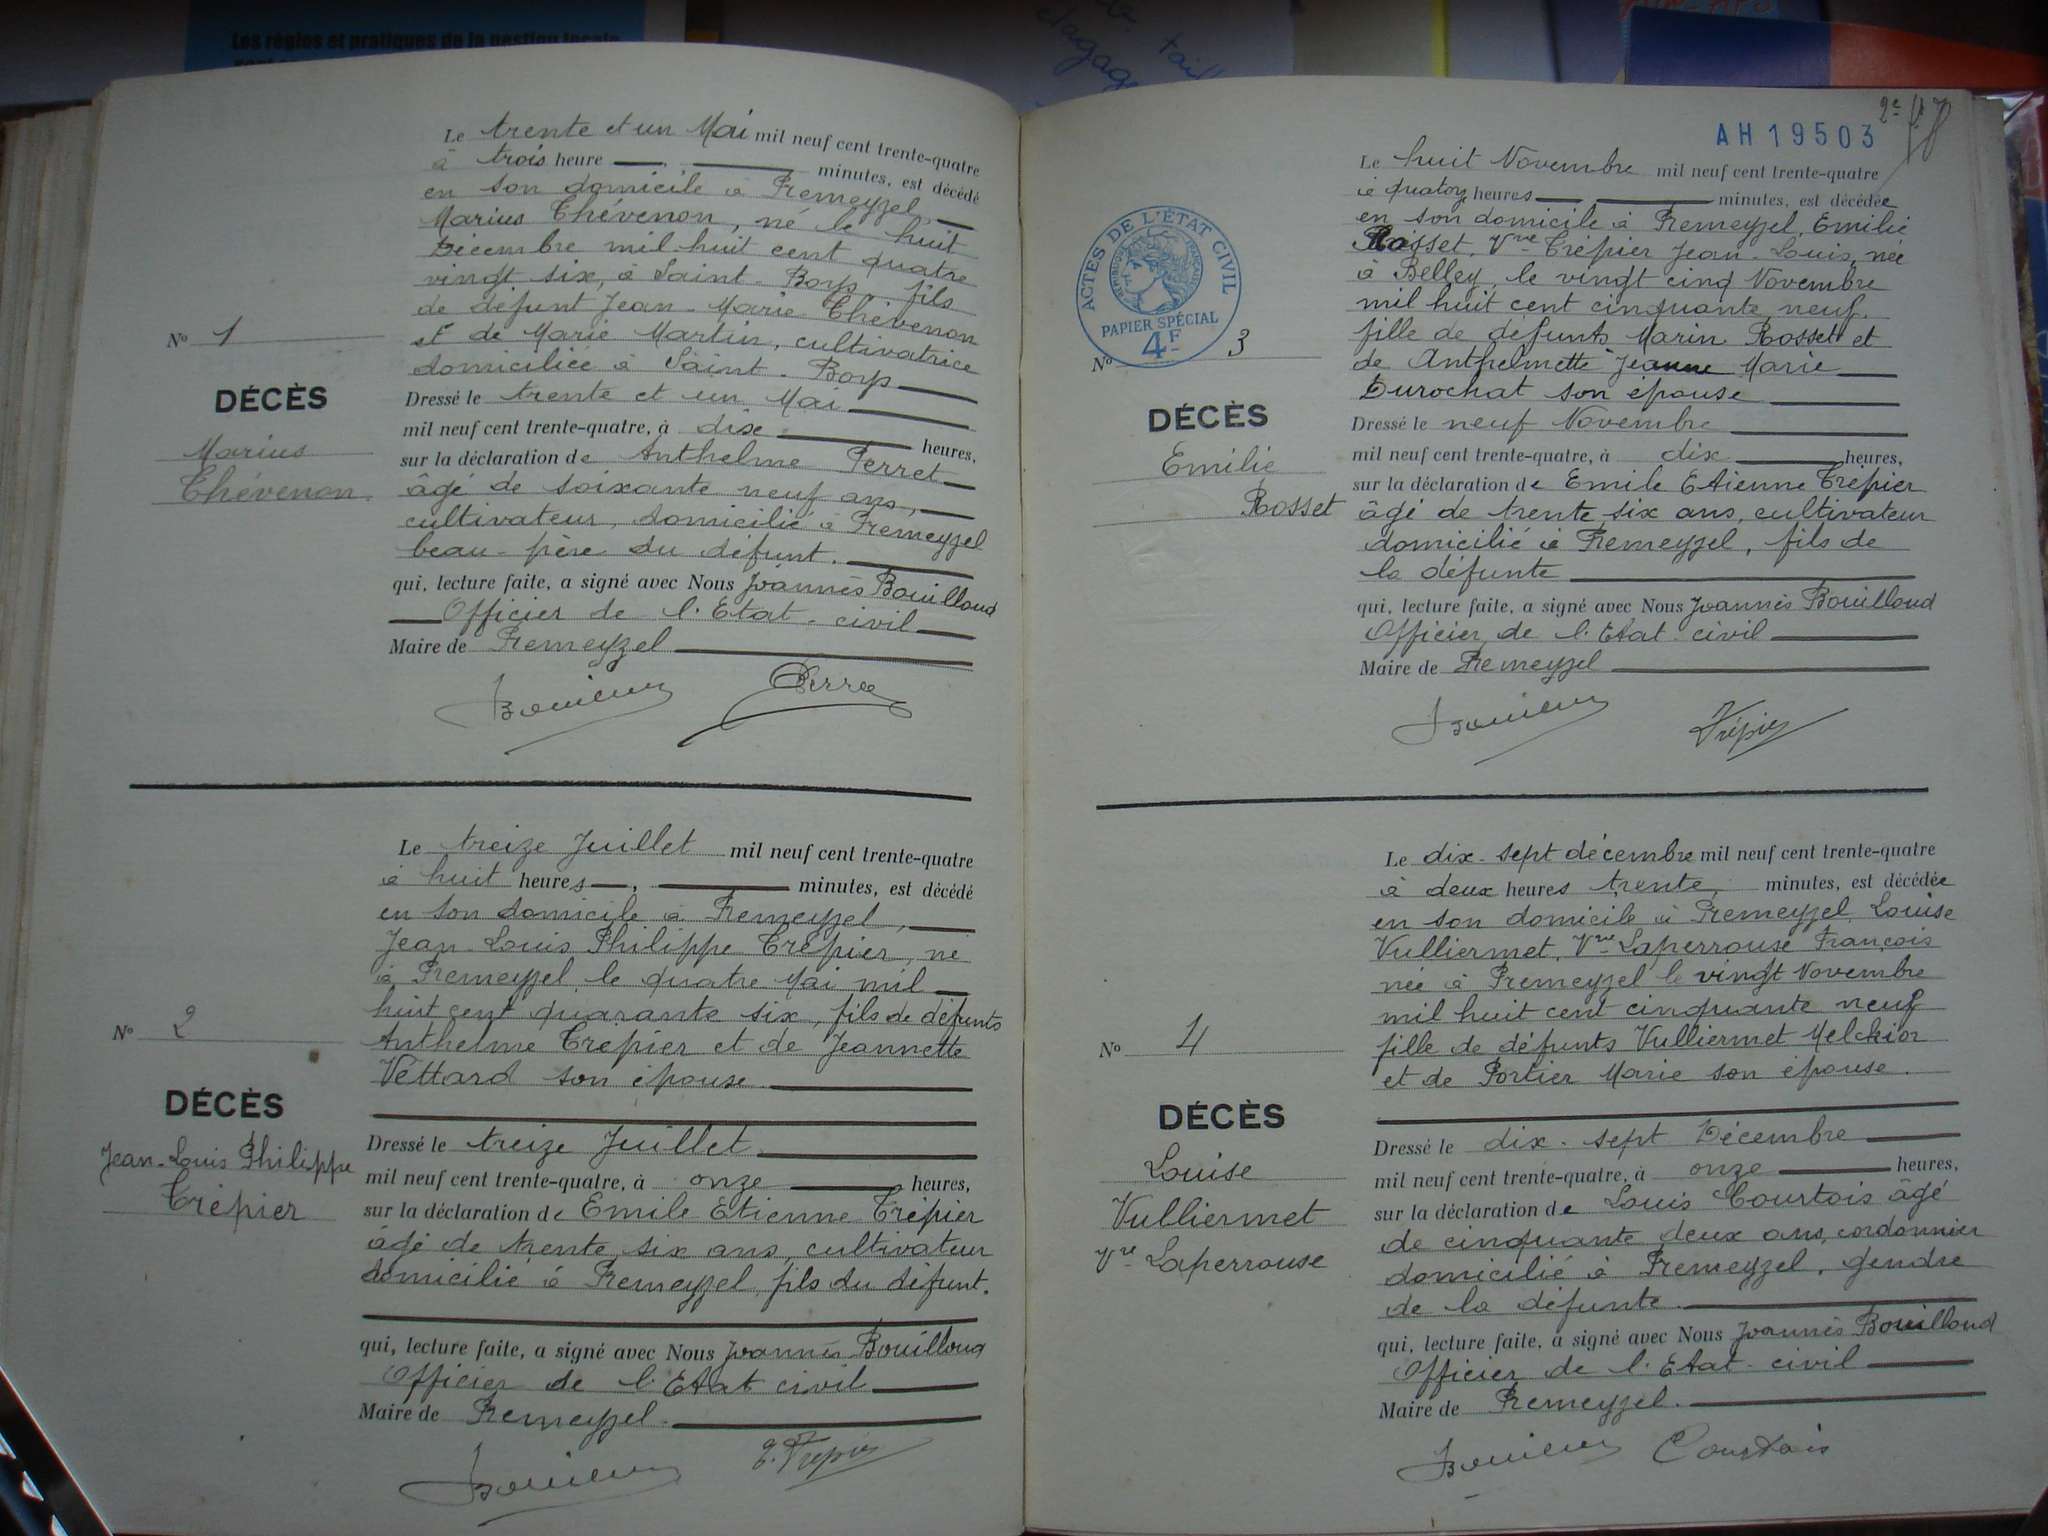 Les règles et pratiques de la gestion locale
Le trente et un Mai mil neuf cent trente-quatre
à trois heure —, — minutes, est décédé
en son domicile à Premeyzel —
Marius Thévenon, né le huit
Décembre mil huit cent quatre
vingt six, à Saint-Boys, fils
de défunt Jean-Marie Thévenon
et de Marie Martin, cultivatrice
domiciliée à Saint-Boys —
Dressé le trente et un Mai —
mil neuf cent trente-quatre, à dix — heures,
sur la déclaration de Anthelme Perret —
âgé de soixante neuf ans, —
cultivateur, domicilié à Premeyzel
beau-père du défunt. —
qui, lecture faite, a signé avec Nous Joannès Bouilloud
— Officier de l'Etat-civil —
Maire de Premeyzel —
No 1
DÉCÈS
Marius
Thévenon.
Le treize Juillet mil neuf cent trente-quatre
à huit heures —, — minutes, est décédé
en son domicile à Premeyzel, —
Jean-Louis Philippe Trépier, né
à Premeyzel, le quatre Mai mil —
huit cent quarante six, fils de défunts
Anthelme Trépier et de Jeannette
Vettard son épouse. —
Dressé le treize Juillet. —
mil neuf cent trente-quatre, à onze — heures,
sur la déclaration de Emile Etienne Trépier
âgé de trente six ans, cultivateur
domicilié à Premeyzel, fils du défunt.
qui, lecture faite, a signé avec Nous Joannès Bouilloud
Officier de l'Etat civil —
Maire de Premeyzel. —
E. Trépier
No 2
DÉCÈS
Jean-Louis Philippe
Trépier
2e
AH 19503
Le huit Novembre mil neuf cent trente-quatre
à quatorz heures — — minutes, est décédée
en son domicile à Premeyzel, Emilie
Rosset, Vve Trépier Jean-Louis, née
à Belley, le vingt cinq Novembre
mil huit cent cinquante neuf.
fille de défunts Marin Rosset et
de Anthelmette Jeanne Marie —
Durochat son épouse —
Dressé le neuf Novembre —
mil neuf cent trente-quatre, à dix — heures,
sur la déclaration de Emile Etienne Trépier
âgé de trente six ans, cultivateur
domicilié à Premeyzel, fils de
la défunte —
qui, lecture faite, a signé avec Nous Joannès Bouilloud
Officier de l'Etat-civil —
Maire de Premeyzel —
Trépier
ACTES DE L'ÉTAT CIVIL
RÉPUBLIQUE FRANÇAISE
PAPIER SPÉCIAL
4F
No 3
DÉCÈS
Emilie
Rosset
Le dix-sept décembre mil neuf cent trente-quatre
à deux heures trente, minutes, est décédée
en son domicile à Premeyzel, Louise
Vulliermet, Vve Laperrouse François
née à Premeyzel le vingt Novembre
mil huit cent cinquante neuf
fille de défunts Vulliermet Melchior
et de Portier Marie son épouse.
Dressé le dix-sept Décembre —
mil neuf cent trente-quatre, à onze — heures,
sur la déclaration de Louis Courtois âgé
de cinquante deux ans, cordonnier
domicilié à Premeyzel, gendre
de la défunte. —
qui, lecture faite, a signé avec Nous Joannès Bouilloud
Officier de l'Etat-civil —
Maire de Premeyzel. —
Courtois
No 4
DÉCÈS
Louise
Vulliermet
Vve Laperrouse